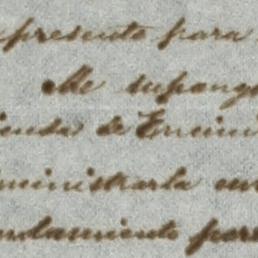 presento para
Me supong
ienda de Encini
ministrarla
ndamiento para